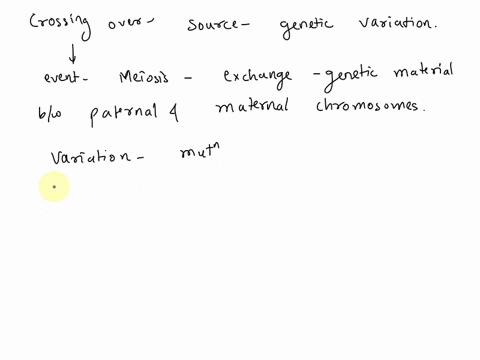 Crossing over- source- genetic variation.
event- Meiosis - exchange - genetic material
b/w paternal & maternal chromosomes.
Variation - mutⁿ